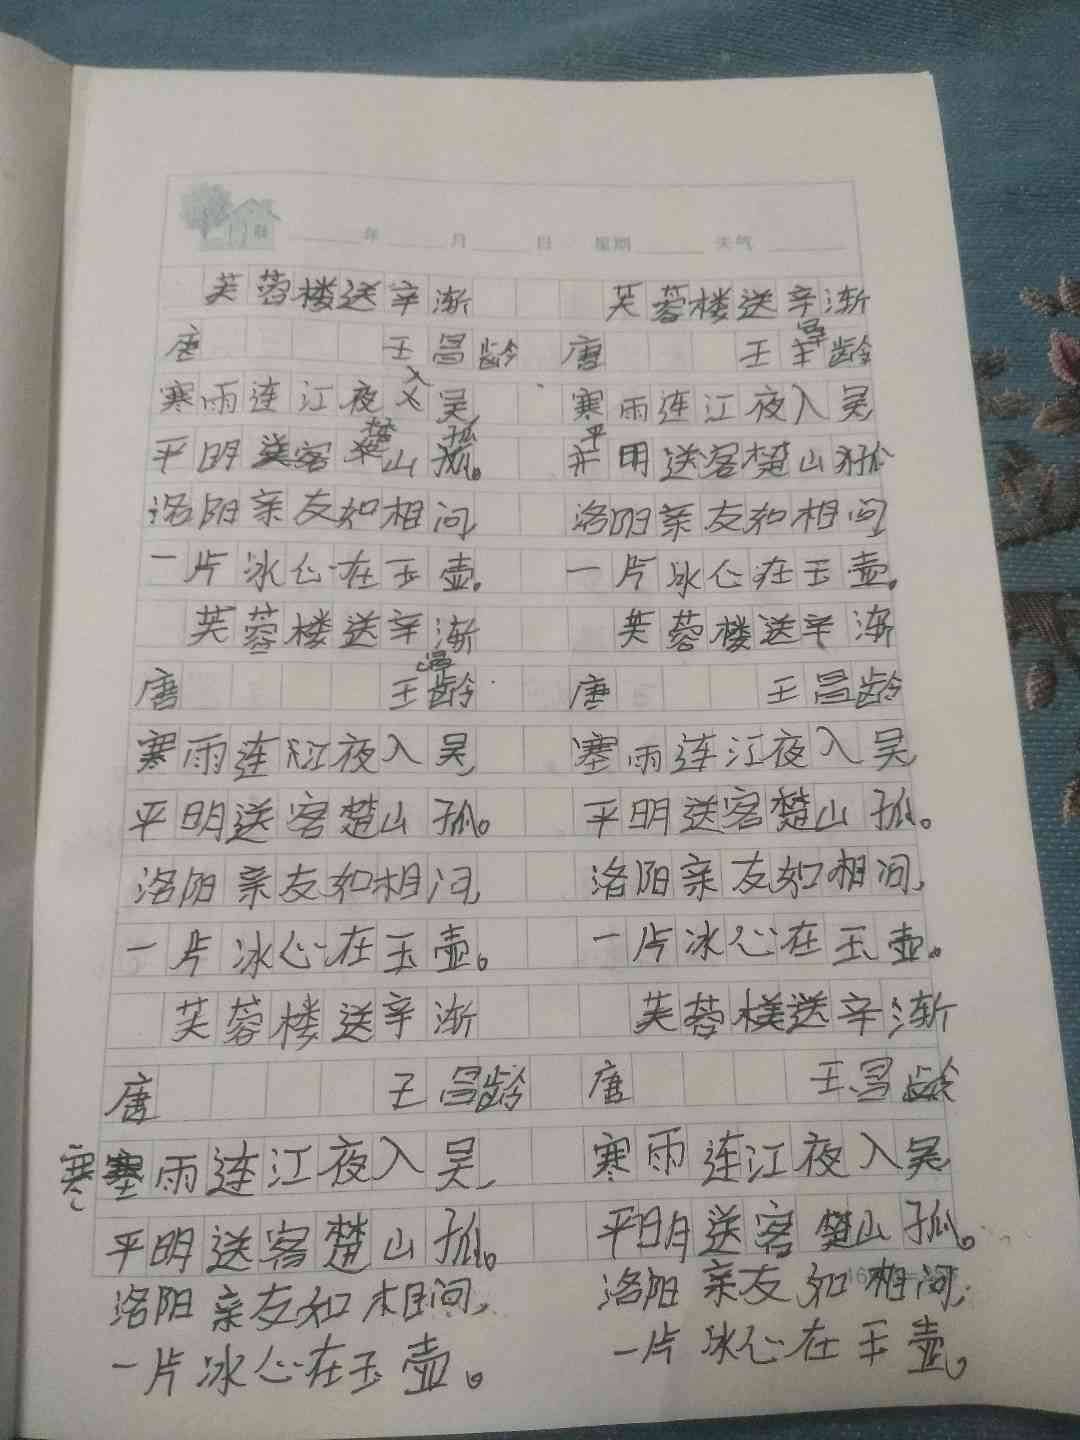 年 月 日 星期 天气
芙蓉楼送辛渐 芙蓉楼送辛渐
唐 王昌龄 唐 王昌龄
寒雨连江夜入吴 寒雨连江夜入吴
平明送客楚山孤。 平明送客楚山孤
洛阳亲友如相问, 洛阳亲友如相问
一片冰心在玉壶。 一片冰心在玉壶。
芙蓉楼送辛渐 芙蓉楼送辛渐
唐 王昌龄 唐 王昌龄
寒雨连江夜入吴, 塞雨连江夜入吴,
平明送客楚山孤。 平明送客楚山孤。
洛阳亲友如相问, 洛阳亲友如相问,
一片冰心在玉壶。 一片冰心在玉壶。
芙蓉楼送辛渐 芙蓉楼送辛渐
唐 王昌龄 唐 王昌龄
寒雨连江夜入吴, 寒雨连江夜入吴
平明送客楚山孤。 平明送客楚山孤。
洛阳亲友如相问, 洛阳亲友如相问,
一片冰心在玉壶。 一片冰心在玉壶。